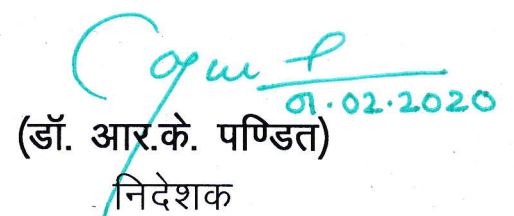 01.02.2020
(डॉ. आर.के. पण्डित)
निदेशक